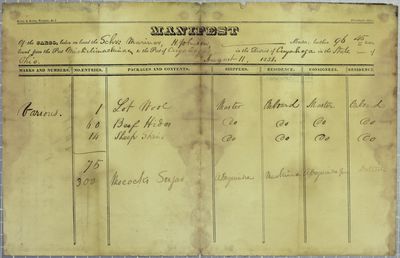 MANIFEST
Of the CARGO, laden on board the Schr. Mariner, H. Johnson Master, burthen 96 45 tons
bound from the Port Michilimackinac, to the Port of Cuyahoga in the District Cuyahoga in the State of
Ohio. August 11, 1831.
MARKS AND NUMBERS. NO. ENTRIES. PACKAGES AND CONTENTS. SHIPPERS. RESIDENCE. CONSIGNEES. RESIDENCE
Various. 1 Lot Wool Master Onboard Master Onboard
60 Beef Hides Do Do Do Do
14 Sheep Skins Do Do Do Do
75
300 Mococks Sugar